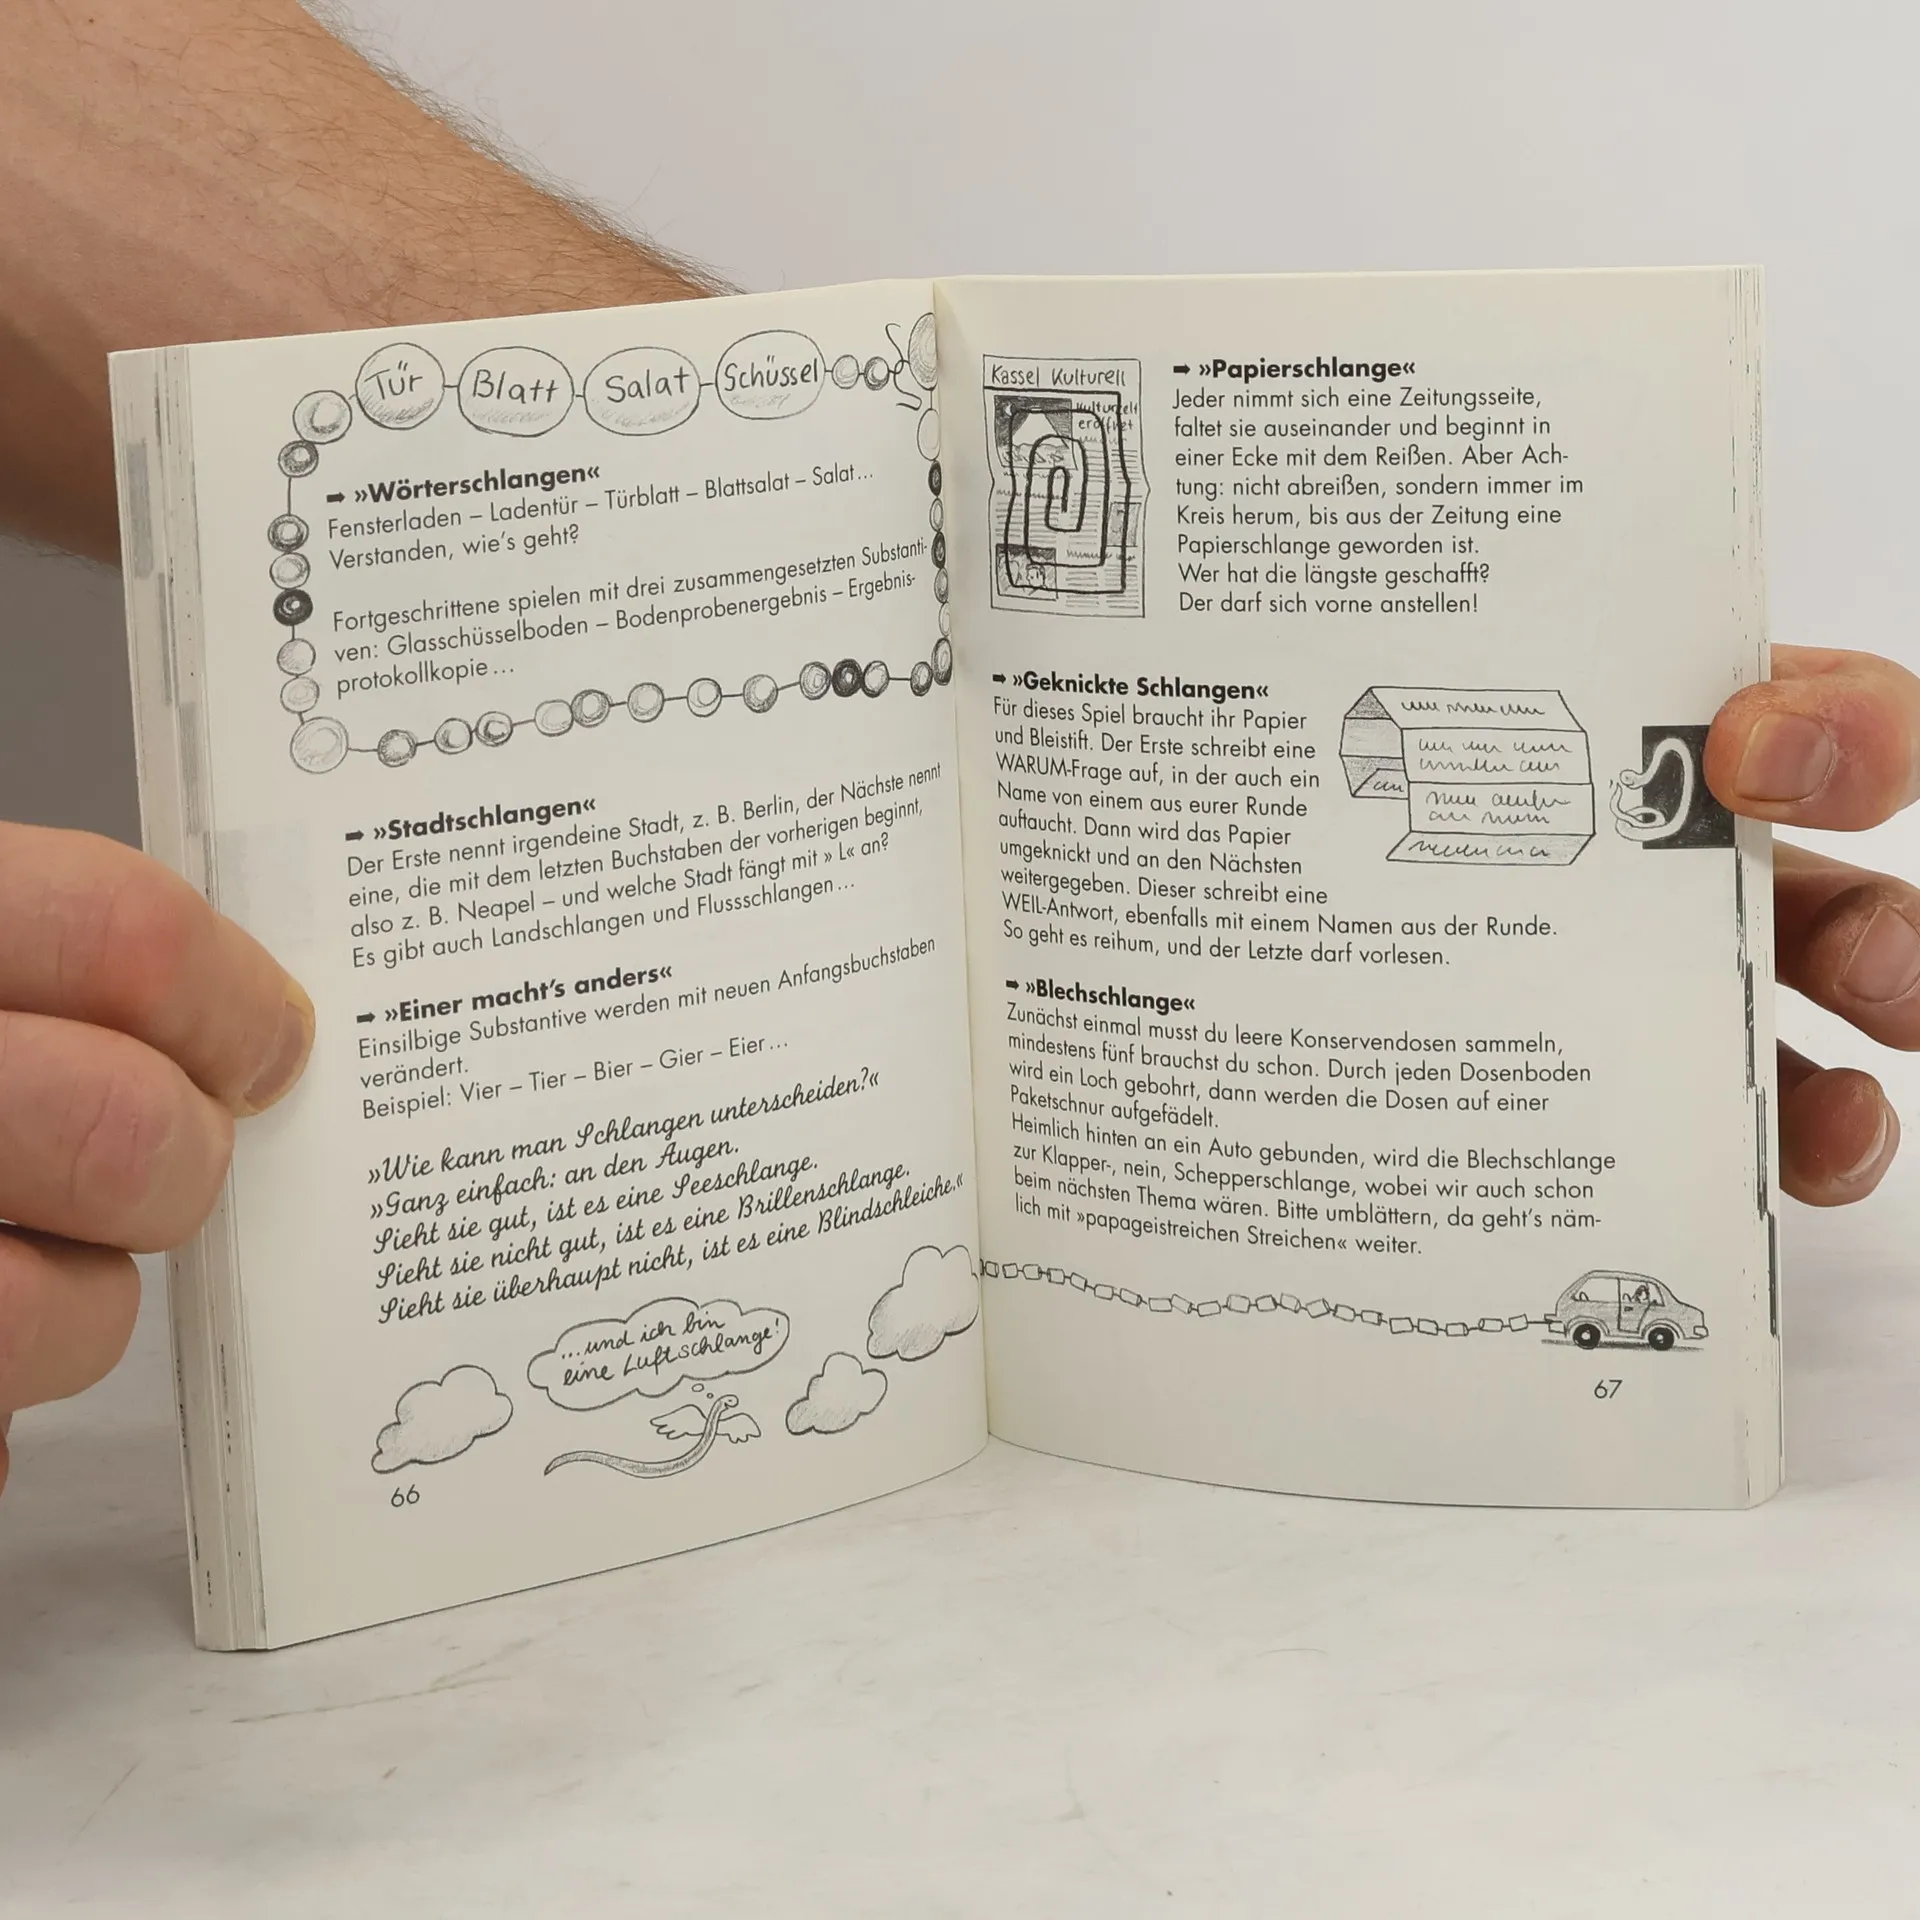 Tür Blatt Salat Schüssel
➡ »Wörterschlangen«
Fensterladen – Ladentür – Türblatt – Blattsalat – Salat...
Verstanden, wie's geht?
Fortgeschrittene spielen mit drei zusammengesetzten Substanti-
ven: Glasschüsselboden – Bodenprobenergebnis – Ergebnis-
protokollkopie...
➡ »Stadtschlangen«
Der Erste nennt irgendeine Stadt, z. B. Berlin, der Nächste nennt
eine, die mit dem letzten Buchstaben der vorherigen beginnt,
also z. B. Neapel – und welche Stadt fängt mit » L« an?
Es gibt auch Landschlangen und Flussschlangen...
➡ »Einer macht's anders«
Einsilbige Substantive werden mit neuen Anfangsbuchstaben
verändert.
Beispiel: Vier – Tier – Bier – Gier – Eier...
»Wie kann man Schlangen unterscheiden?«
»Ganz einfach: an den Augen.
Sieht sie gut, ist es eine Seeschlange.
Sieht sie nicht gut, ist es eine Brillenschlange.
Sieht sie überhaupt nicht, ist es eine Blindschleiche.«
...und ich bin
eine Luftschlange!
66
Kassel Kulturell
Kulturzelt
eröffnet
➡ »Papierschlange«
Jeder nimmt sich eine Zeitungsseite,
faltet sie auseinander und beginnt in
einer Ecke mit dem Reißen. Aber Ach-
tung: nicht abreißen, sondern immer im
Kreis herum, bis aus der Zeitung eine
Papierschlange geworden ist.
Wer hat die längste geschafft?
Der darf sich vorne anstellen!
➡ »Geknickte Schlangen«
Für dieses Spiel braucht ihr Papier
und Bleistift. Der Erste schreibt eine
WARUM-Frage auf, in der auch ein
Name von einem aus eurer Runde
auftaucht. Dann wird das Papier
umgeknickt und an den Nächsten
weitergegeben. Dieser schreibt eine
WEIL-Antwort, ebenfalls mit einem Namen aus der Runde.
So geht es reihum, und der Letzte darf vorlesen.
➡ »Blechschlange«
Zunächst einmal musst du leere Konservendosen sammeln,
mindestens fünf brauchst du schon. Durch jeden Dosenboden
wird ein Loch gebohrt, dann werden die Dosen auf einer
Paketschnur aufgefädelt.
Heimlich hinten an ein Auto gebunden, wird die Blechschlange
zur Klapper-, nein, Schepperschlange, wobei wir auch schon
beim nächsten Thema wären. Bitte umblättern, da geht's näm-
lich mit »papageistreichen Streichen« weiter.
67